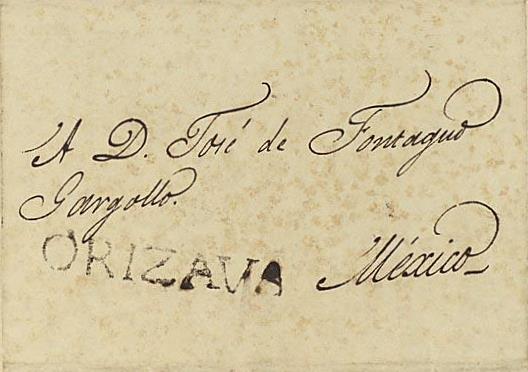 A D. José de Fontagud
Gargollo.
ORIZAVA México